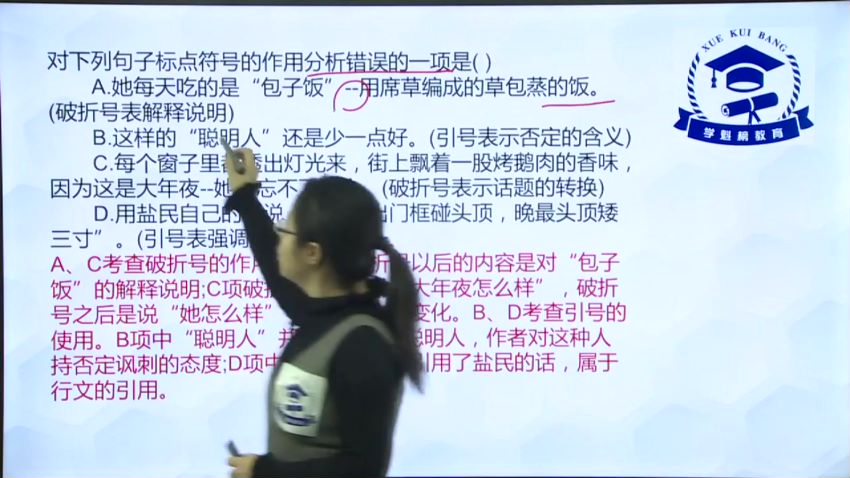 对下列句子标点符号的作用分析错误的一项是( )
A.她每天吃的是“包子饭”--用席草编成的草包蒸的饭。
(破折号表解释说明)
B.这样的“聪明人”还是少一点好。(引号表示否定的含义)
C.每个窗子里都透出灯光来，街上飘着一股烤鹅肉的香味，
因为这是大年夜--她 忘不了 (破折号表示话题的转换)
D.用盐民自己的 说 出门框碰头顶，晚最头顶矮
三寸”。(引号表强调
A、C考查破折号的作 号以后的内容是对“包子
饭”的解释说明;C项破折 大年夜怎么样”，破折
号之后是说“她怎么样” 变化。B、D考查引号的
使用。B项中“聪明人”并 聪明人，作者对这种人
持否定讽刺的态度;D项中 引用了盐民的话，属于
行文的引用。
XUE KUI BANG
学魁榜教育